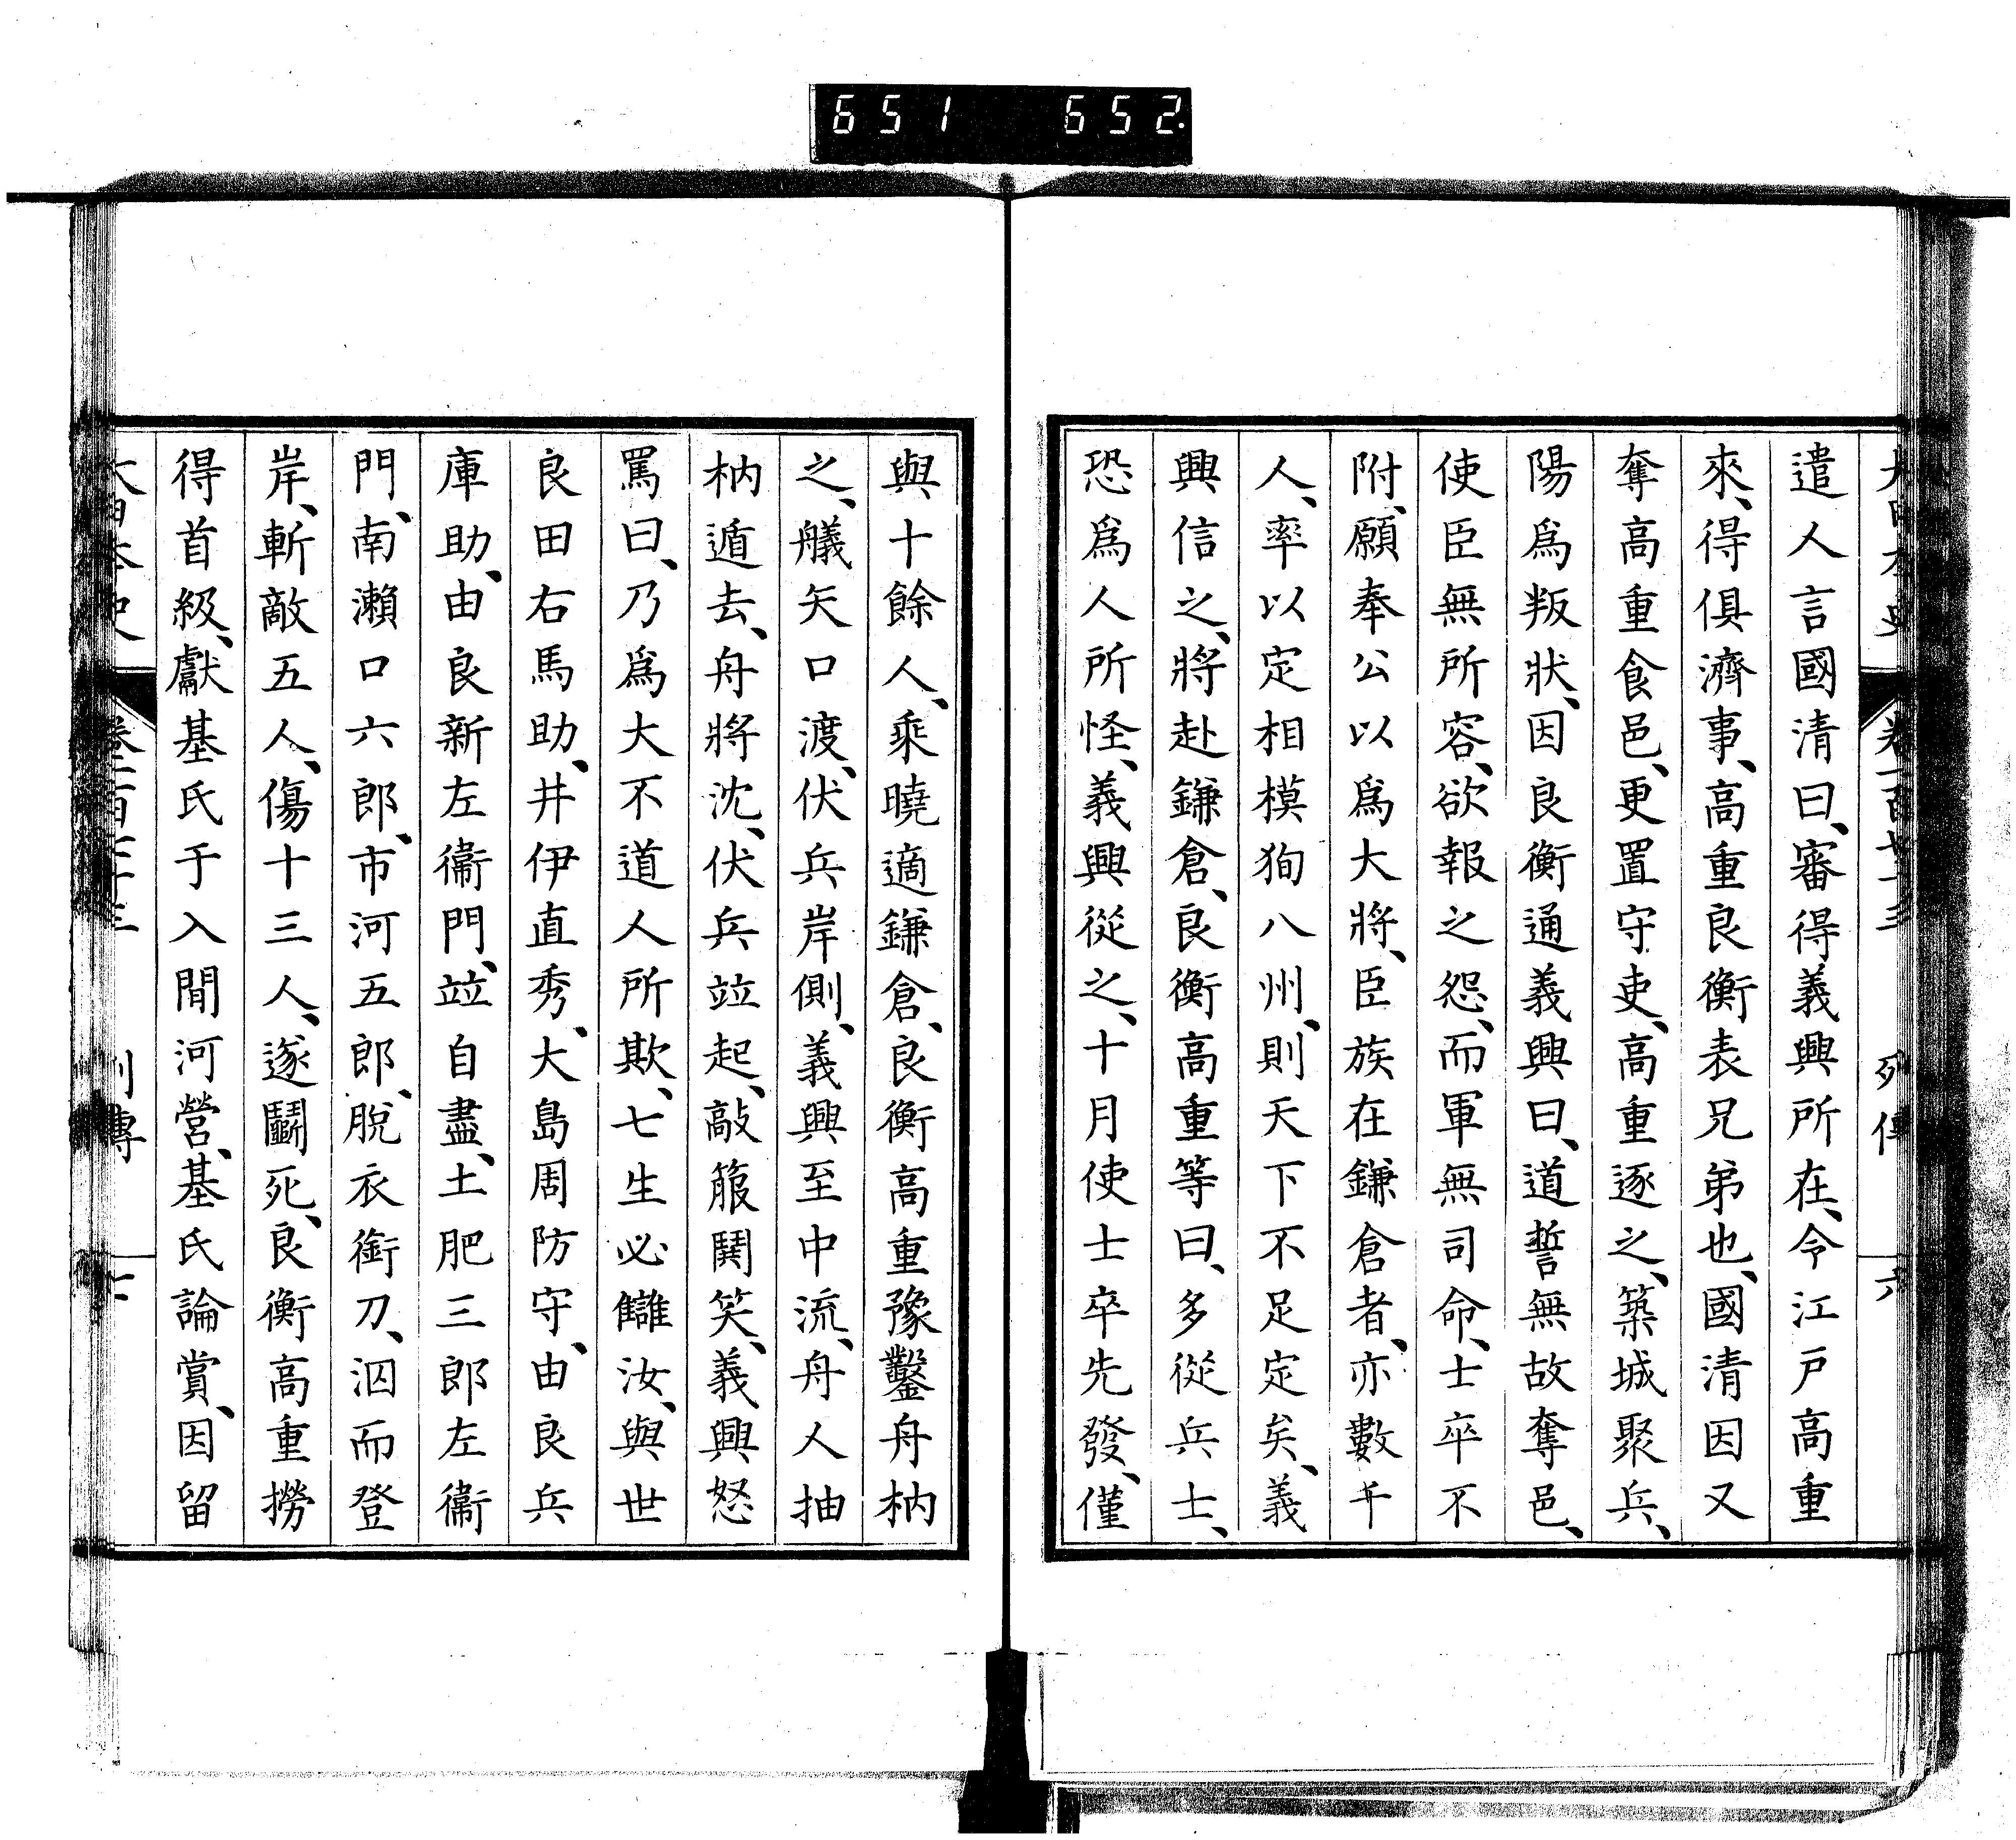 651 652
遣人言國清曰、審得義興所在、令江戸高重
來、得俱濟事、高重良衡表兄弟也、國清因又
奪高重食邑、更置守吏、高重逐之、築城聚兵、
陽爲叛狀、因良衡通義興曰、道誓無故奪邑、
使臣無所容、欲報之怨、而軍無司命、士卒不
附、願奉公以爲大將、臣族在鎌倉者、亦數千
人、率以定相模狥八州、則天下不足定矣、義
興信之、將赴鎌倉、良衡高重等曰、多從兵士、
恐爲人所怪、義興從之、十月使士卒先發、僅
與十餘人、乘曉適鎌倉、良衡高重豫鑿舟枘
之、艤矢口渡、伏兵岸側、義興至中流、舟人抽
枘遁去、舟將沈、伏兵竝起、敲箙鬨笑、義興怒
罵曰、乃爲大不道人所欺、七生必讎汝、與世
良田右馬助、井伊直秀、大島周防守、由良兵
庫助、由良新左衞門、竝自盡、土肥三郎左衞
門、南瀬口六郎、市河五郎、脫衣銜刀、泅而登
岸、斬敵五人、傷十三人、遂鬭死、良衡高重撈
得首級、獻基氏于入間河營、基氏論賞、因留